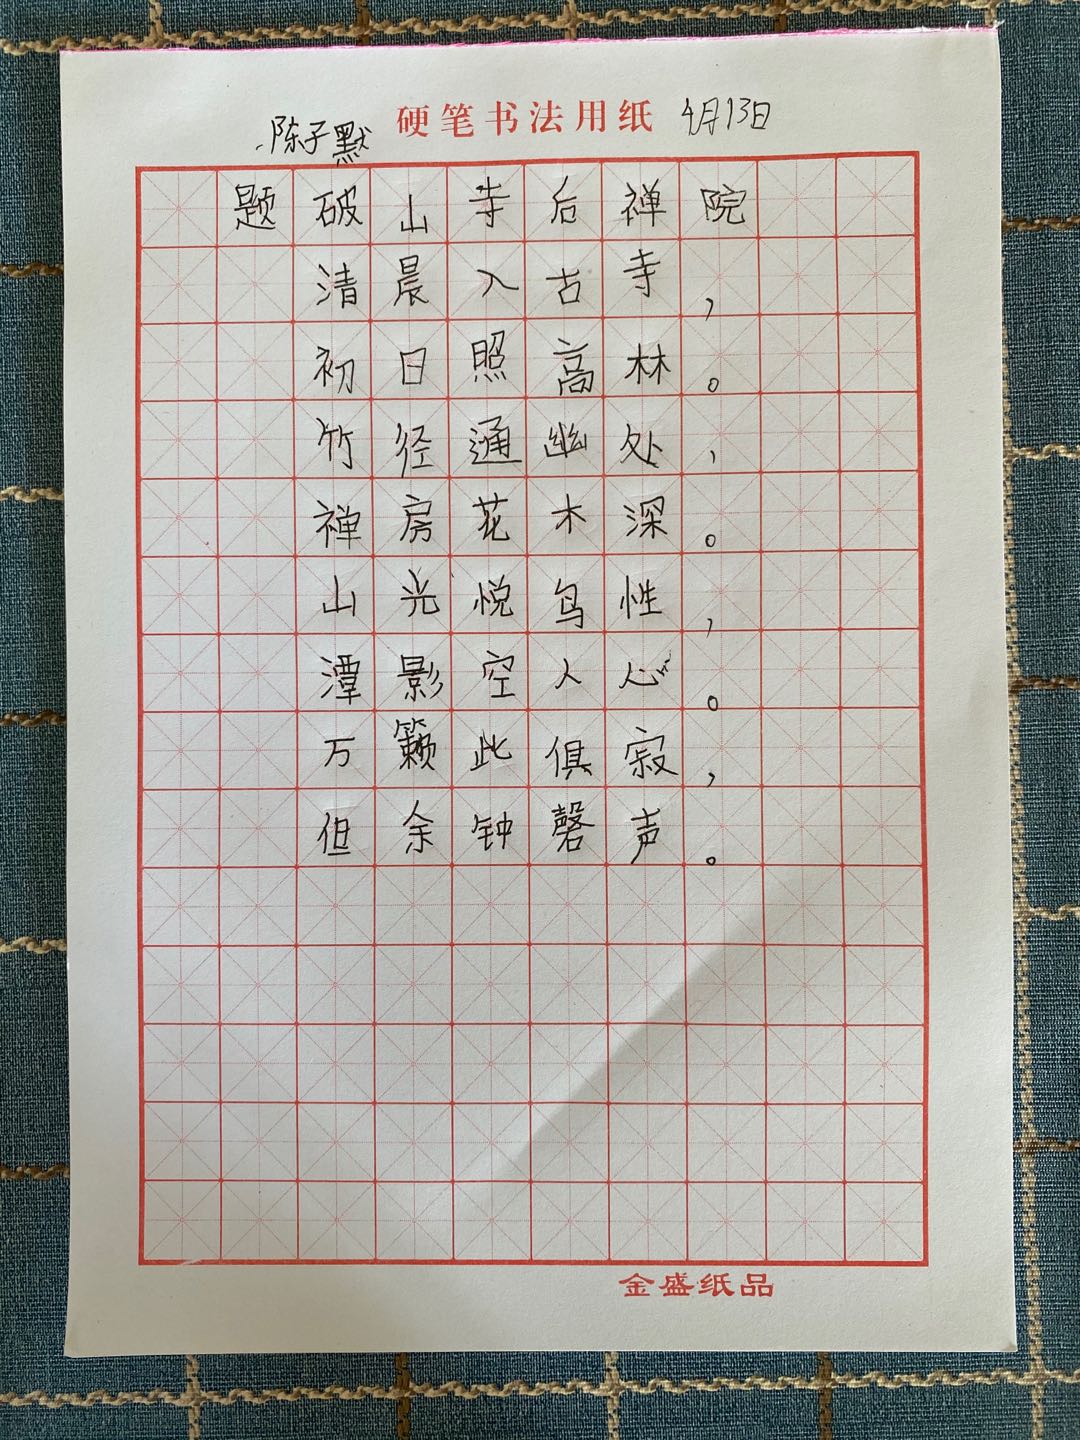 硬笔书法用纸 4月13日
陈子默
题破山寺后禅院
清晨入古寺，
初日照高林。
竹径通幽处，
禅房花木深。
山光悦鸟性，
潭影空人心。
万籁此俱寂，
但余钟磬声。
金盛纸品